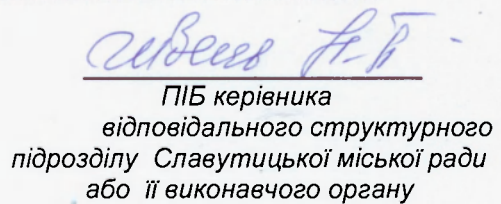 ПІБ керівника
відповідального структурного
підрозділу Славутицької міської ради
або її виконавчого органу